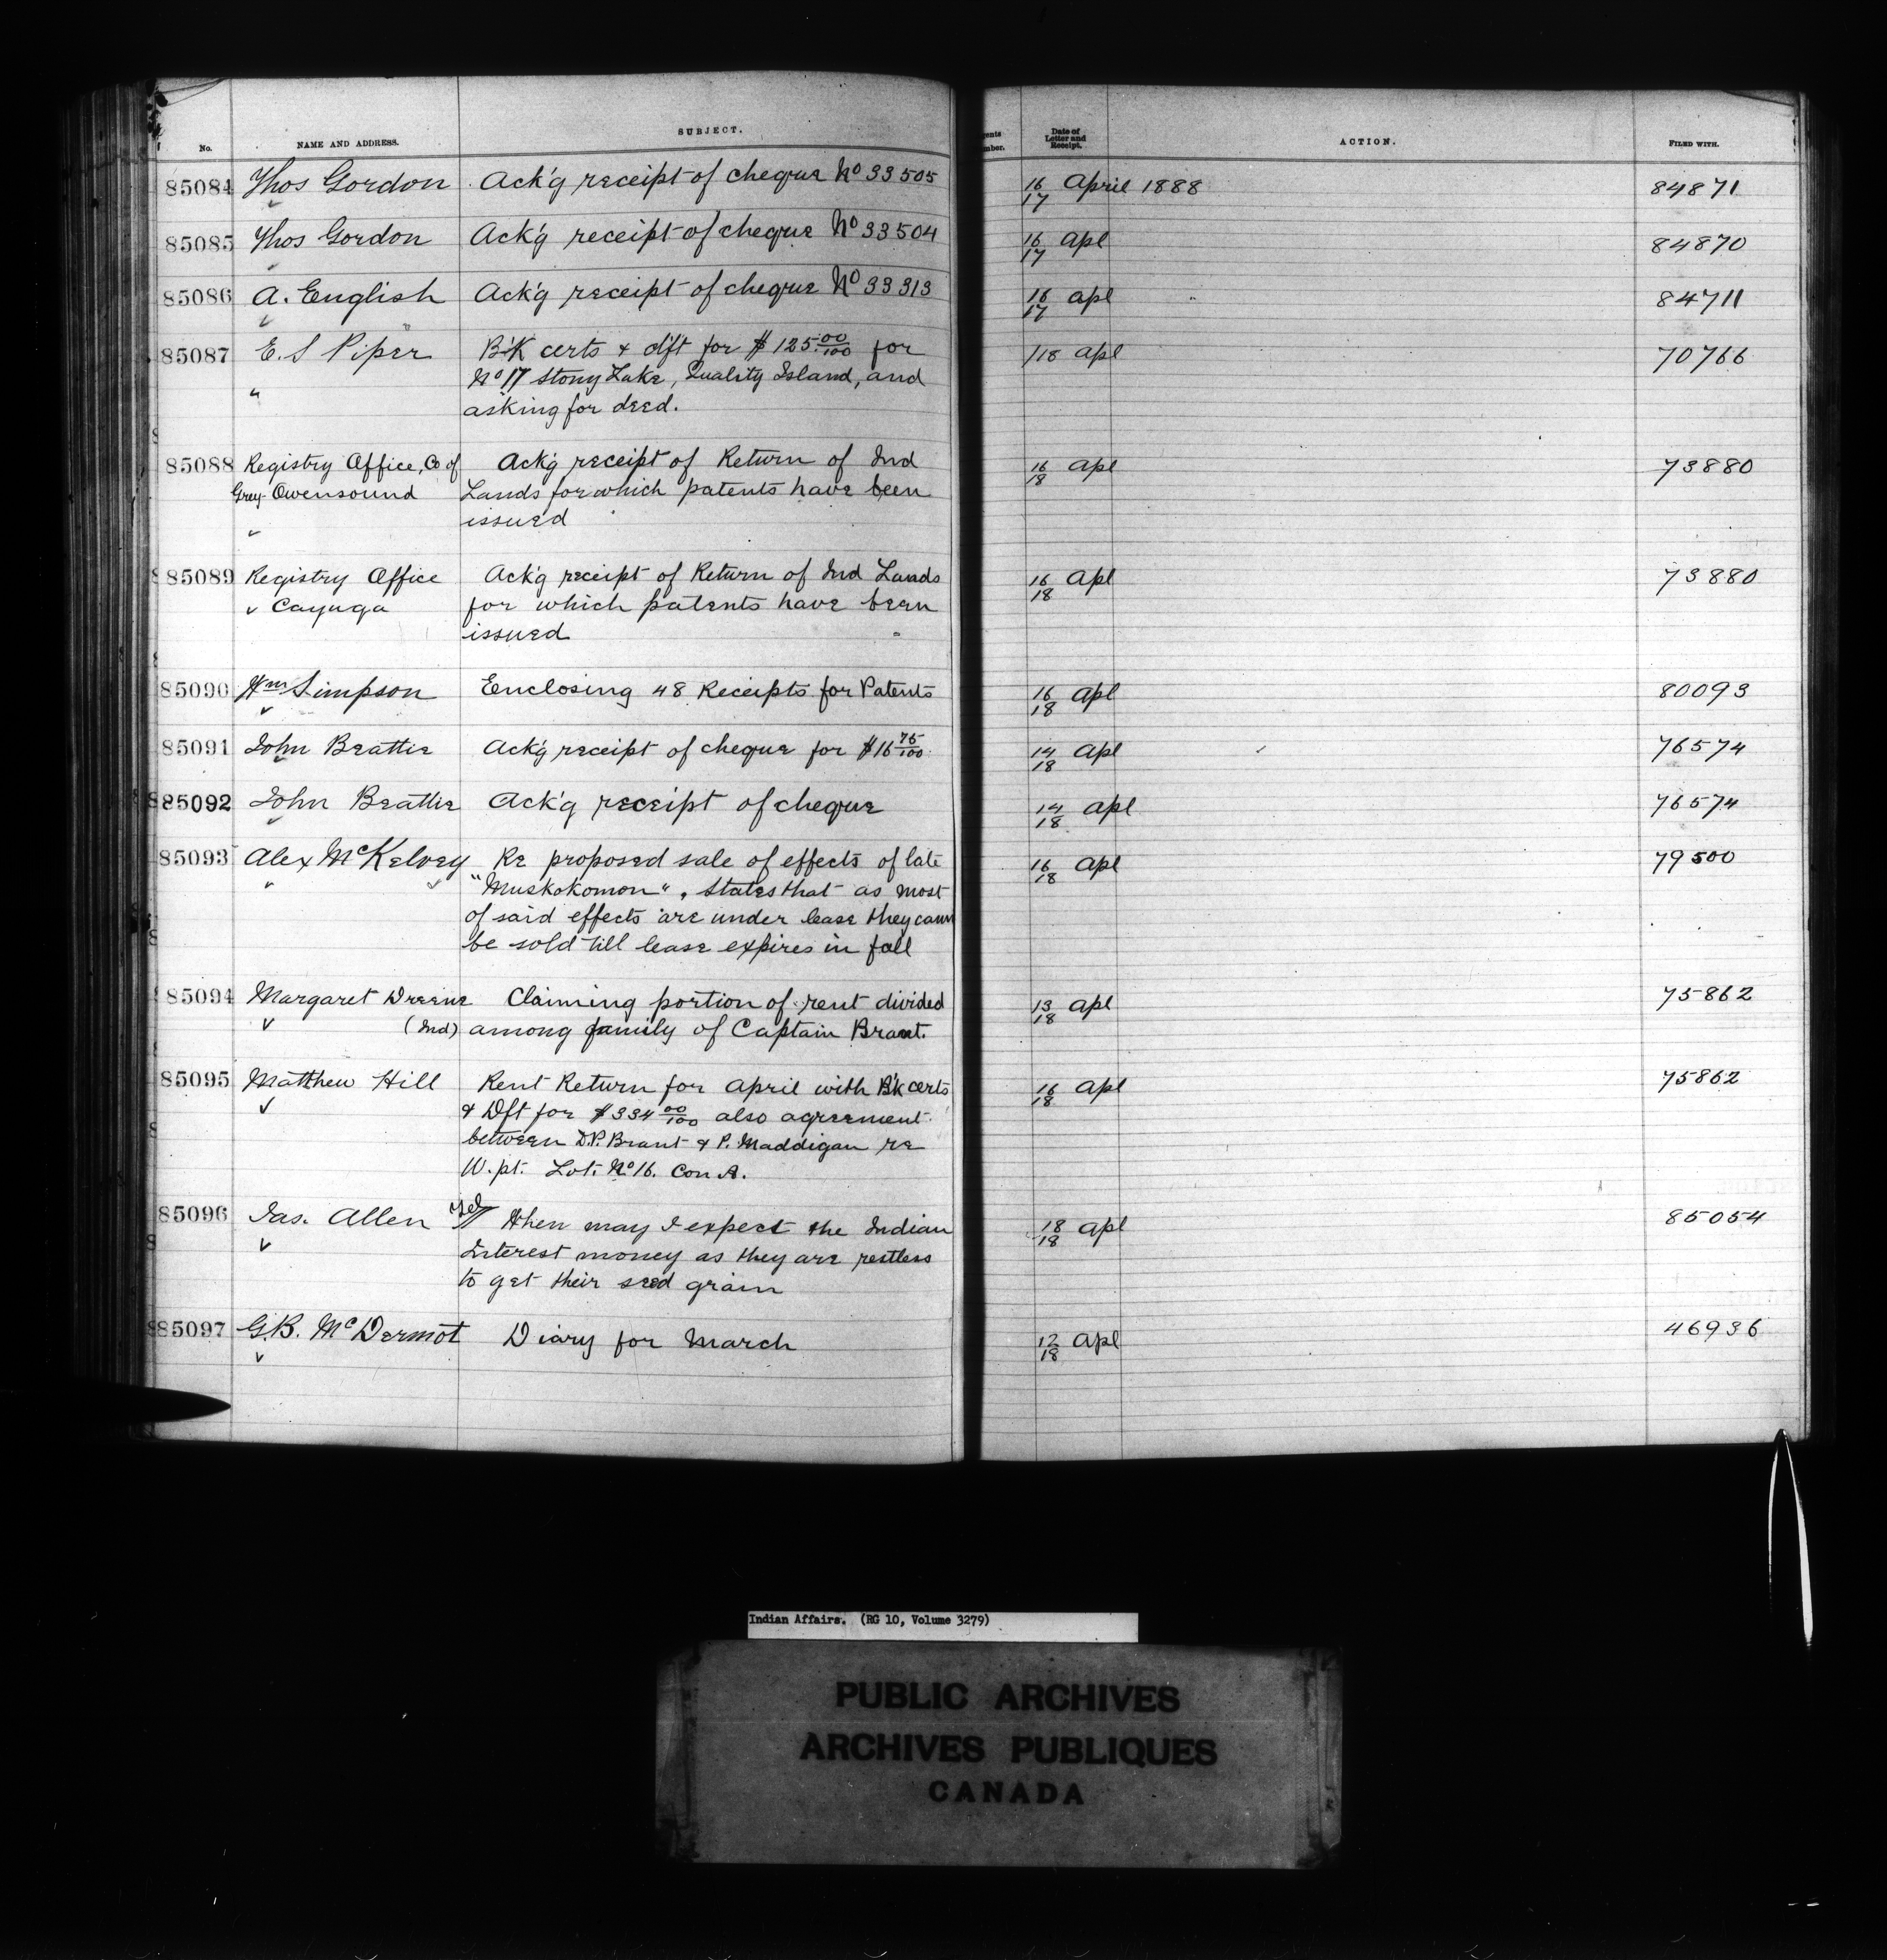 No. NAME AND ADDRESS. SUBJECT. Date of Letter and Receipt. ACTION. FILED WITH.
85084 Thos Gordon Ack'g receipt of cheque No 33505 16/17 April 1888 84871
85085 Thos Gordon Ack'g receipt of cheque No 33504 16/17 Apl 84870
85086 A. English Ack'g receipt of cheque No 33313 16/17 Apl 84711
85087 E. S Piper B'k certs & d'ft for $125.00/100 for /18 Apl 70766
No 17 Stony Lake, Quality Island, and
asking for deed.
85088 Registry Office, Co of Ack'g receipt of Return of Ind 16/18 Apl 73880
Grey- Owensound Lands for which patents have been
issued
85089 Registry Office Ack'g receipt of Return of Ind Lands 16/18 Apl 73880
Cayuga for which patents have been
issued
85090 Wm Simpson Enclosing 48 Receipts for Patents 16/18 Apl 80093
85091 John Beattie Ack'g receipt of cheque for $16 75/100 14/18 Apl 76574
85092 John Beattie Ack'g receipt of cheque 14/18 Apl 76574
85093 Alex McKelvey Re proposed sale of effects of late 16/18 Apl 79500
"Muskokomon", states that as most
of said effects are under lease they cann
be sold till lease expires in fall
85094 Margaret Dreene Claiming portion of rent divided 13/18 Apl 75862
(Ind) among family of Captain Brant.
85095 Matthew Hill Rent Return for April with B'k certs 16/18 Apl 75862
& Dft for $334 00/100 also agreement
between D.P. Brant & P. Maddigan re
W. pt. Lot. No 16. Con A.
85096 Jas. Allen Tel When may I expect the Indian 18/18 Apl 85054
Interest money as they are restless
to get their seed grain
85097 G.B. McDermot Diary for March 12/18 Apl 46936
Indian Affairs. (RG 10, Volume 3279)
PUBLIC ARCHIVES
ARCHIVES PUBLIQUES
CANADA